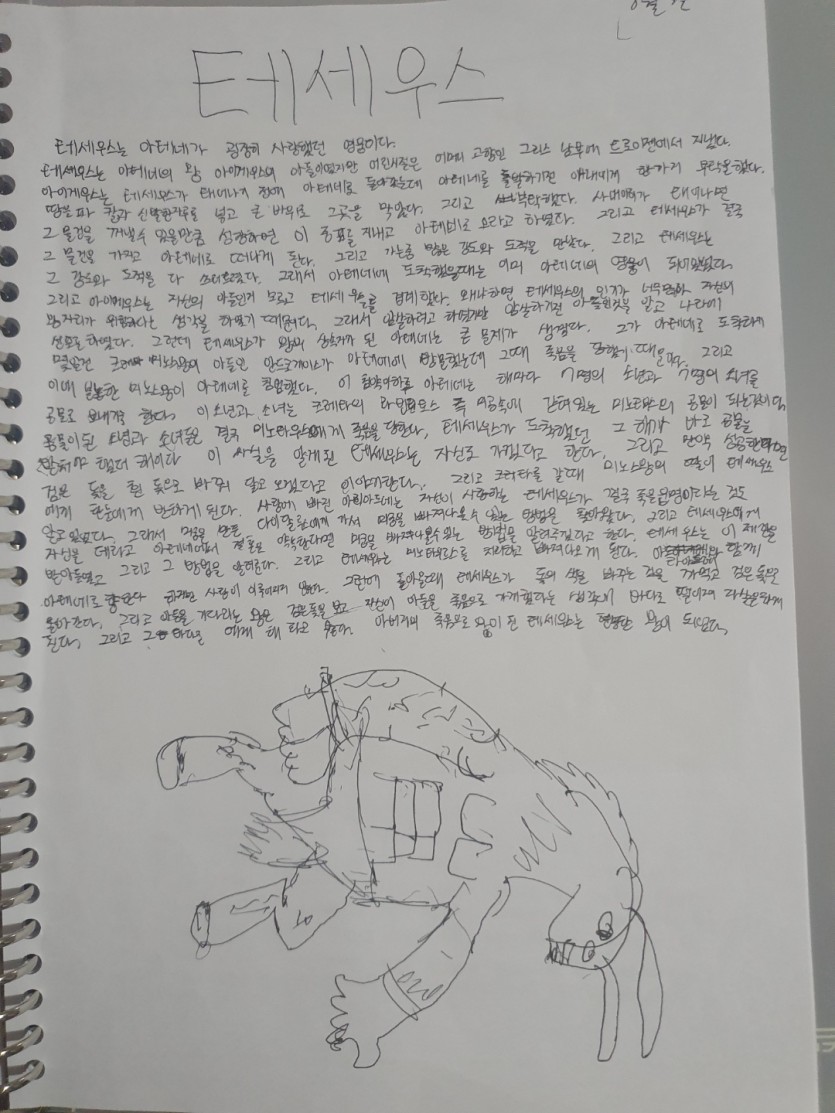 테세우스
테세우스는 아테네가 굉장히 사랑했던 영웅이다.
테세우스는 아테네의 왕 아이게우스의 아들이었지만 어린시절은 어머니 고향인 그리스 남부에 트로이젠에서 지냈다.
아이게우스는 테세우스가 태어나기 전에 아테네로 돌아갔는데 아테네로 출발하기전 아내에게 한가지 부탁을했다.
땅을 파 칼과 신발한짝을 넣고 큰 바위로 그곳을 막았다. 그리고 부탁했다. 사내아이가 태어나면
그 물건을 꺼낼수 있을만큼 성장하면 이 증표를 지내고 아테네로 오라고 하였다. 그리고 테세우스가 결국
그 물건을 가지고 아테네로 떠나게 된다. 그리고 가는동 많은 강도와 도적을 만났다. 그리고 테세우스는
그 강도와 도적을 다 쓰러트렸다. 그래서 아테네에 도착했을때는 이미 아테네의 영웅이 되어있었다.
그리고 아이게우스는 자신의 아들인지 모르고 테세우스를 경계했다. 왜냐하면 테세우스의 인기가 너무 자신의
왕자리가 위험하다는 생각을 하였기 때문이다. 그래서 암살하려고 하였지만 암살하기전 아들인것을 알고 나라에
선포하였다. 그런데 테세우스가 왕의 상속자가 된 아테네는 큰 문제가 생겼다. 그가 아테네로 도착하기
몇일전 크레타 미노스왕의 아들인 안드로게이스가 아테네에 방문했는데 그때 죽음을 당했기 때문이다. 그리고
이에 분노한 미노스왕이 아테네를 침입했다. 이 아테네는 해마다 7명의 소년과 7명의 소녀를
공물로 보내기로 한다. 이 소년과 소녀는 크레타의 라비린토스 즉 미궁속에 갇혀있는 미노타우스의 공물이 되는것이다.
공물이된 소년과 소녀들은 결국 미노타우스에게 죽음을 당한다. 테세우스가 도착했던 그 해가 바로 공물을
바쳐야 했던 해이다 이 사실을 알게된 테세우스는 자신도 가겠다고 한다. 그리고 만약 성공한다면
검은 돛을 흰 돛으로 바꿔 달고 오겠다고 이야기한다. 그리고 크레타로 갈때 미노스왕의 딸이 테세우스
에게 한눈에 반하게 된다. 사랑에 빠진 아리아드네는 자신이 사랑하는 테세우스가 결국 죽을운명이라는 것도
알고 있었다. 그래서 미궁을 만든 다이달로스에게 가서 미궁을 빠져나올수 있는 방법을 찾아왔다. 그리고 테세우스에게
자신을 데리고 아테네에서 결혼을 약속한다면 미궁을 빠져나올수있는 방법을 알려주겠다고 한다. 테세우스는 이 제안을
받아들였고 그리고 그 방법을 알려준다. 그리고 테세우스는 미노타우스를 처리하고 빠져나오게 된다. 함께
아테네로 향한다 하지만 사랑이 이루어지지 않았다. 그런데 돌아올때 테세우스가 돛의 색을 바꾸는 것을 까먹고 검은 돛으로
돌아간다. 그리고 아들을 기다리는 왕은 검은돛을 보고 자신이 아들을 죽음으로 가게했다는 생각에 바다로 떨어져 자살을하게
된다. 그리고 그 바다를 에게 해 라고 부른다. 아버지의 죽음으로 왕이 된 테세우스는 현명한 왕이 되었다.